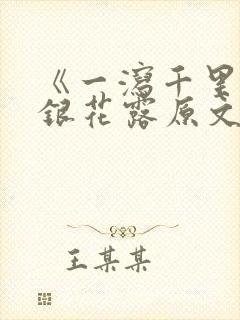 《一泻千里
银花露原文
王某某